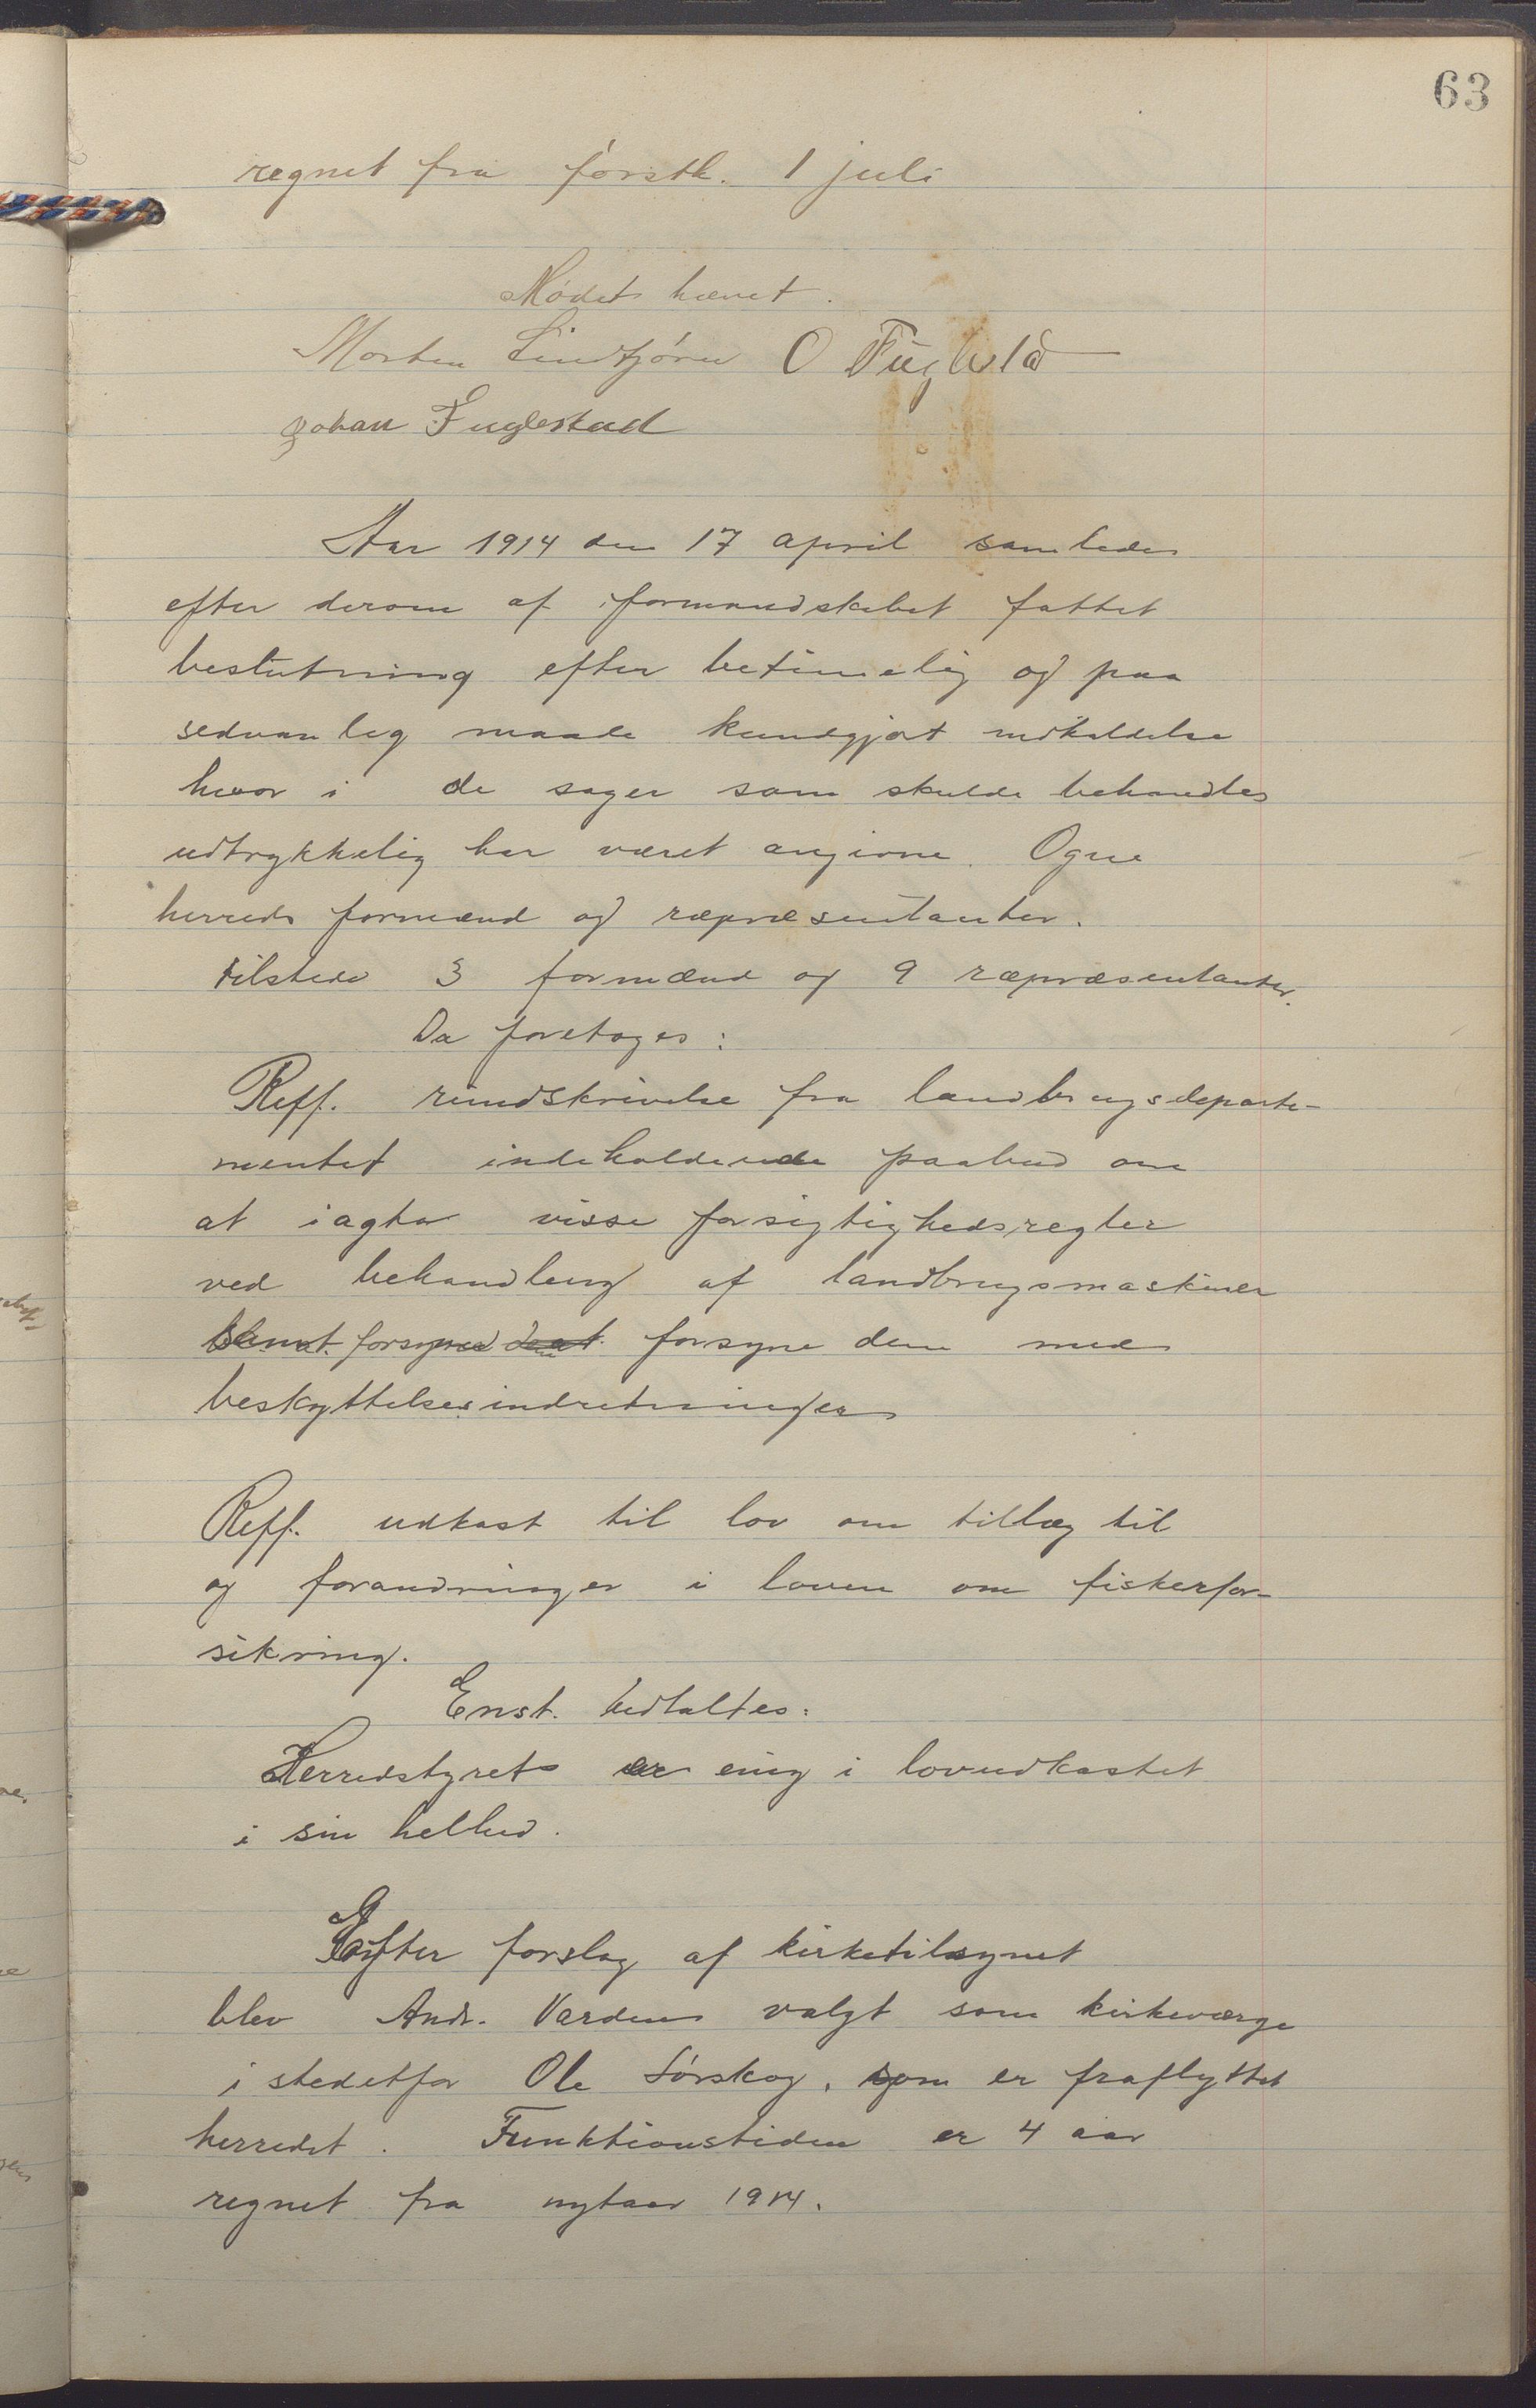 63
regnet fra førstk. 1 juli
Mødet hævet.
Morten Lindtjørn O Fuglestad
Johan Fuglestad
Aar 1914 den 17 april samledes
efter derom af formandskabet fattet
beslutning efter betimelig og paa
sedvanlig maade kundgjort indkaldelse
hvor i de sager som skulde behandles
udtrykkelig har været angivne. Ogne
herreds formænd og repræsentanter.
tilstede 3 formænd og 9 repræsentanter.
Da foretoges:
Reff. rundskrivelse fra landbrugsdeparte-
mentet indeholdende paabud om
at iagta visse forsigtighedsregler
ved behandling af landbrugsmaskiner
samt forsyne dem med
beskyttelsesindretninger
Reff. udkast til lov om tillæg til
og forandringer i loven om fiskerfor-
sikring.
Enst. udtaltes:
Herredstyret er enig i lovudkastet
i sin helhed.
Efter forslag af kirketilsynet
blev Andr. Varden valgt som kirkeværge
i stedetfor Ole Sørskog, som er fraflyttet
herredet. Funktionstiden er 4 aar
regnet fra nytaar 1914.